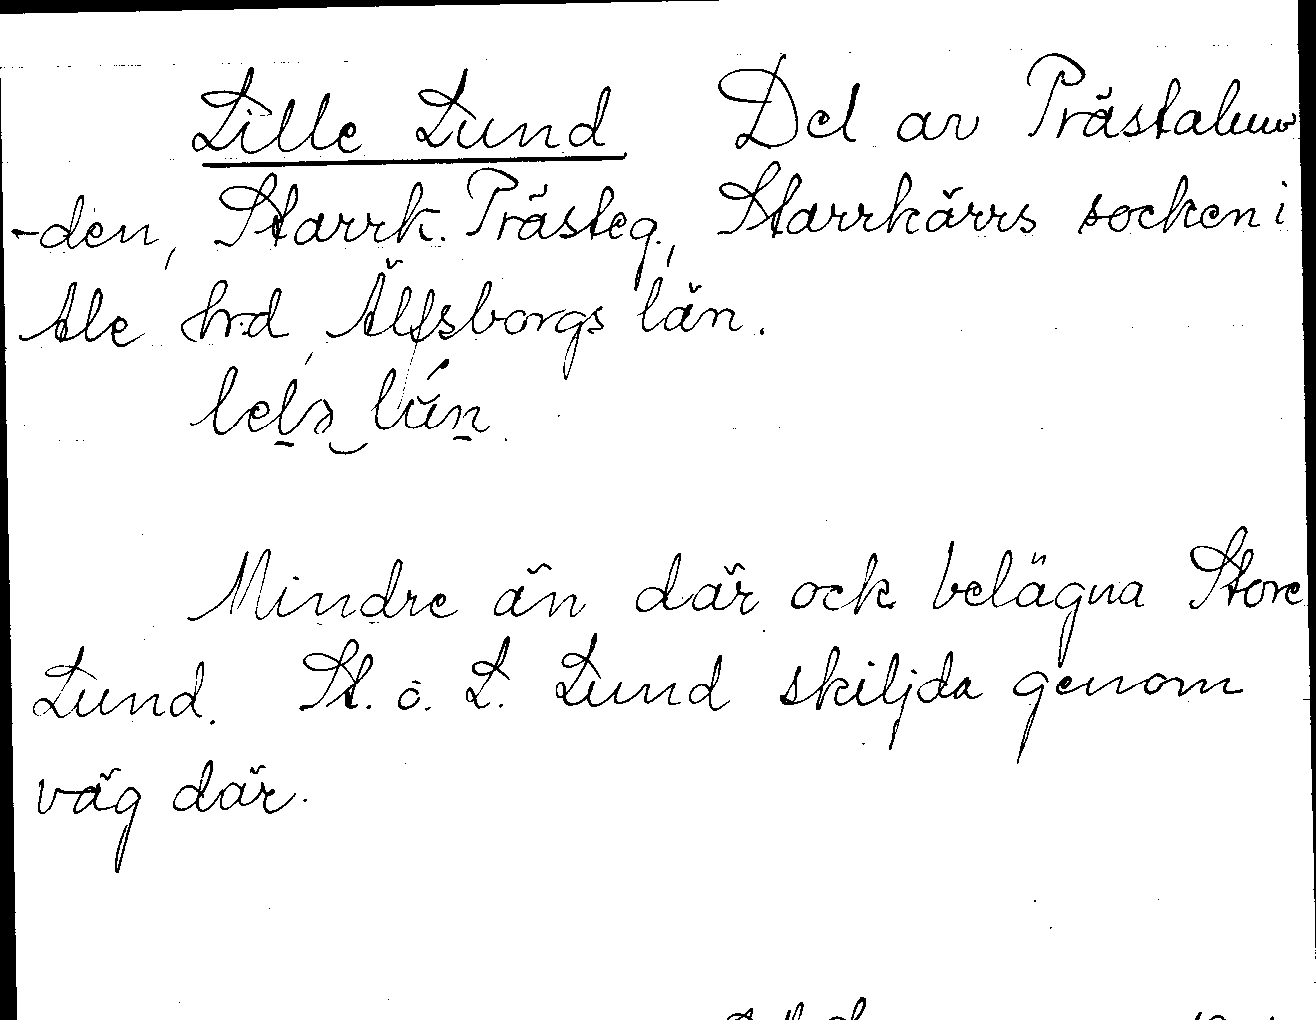 Lille Lund Del av Prästalun
-den, Starrk. Prästeg., Starrkärrs socken i
Ale hrd, Älfsborgs län.
Mindre än där ock belägna Store
Lund. St. o. L. Lund skiljda genom
väg där.